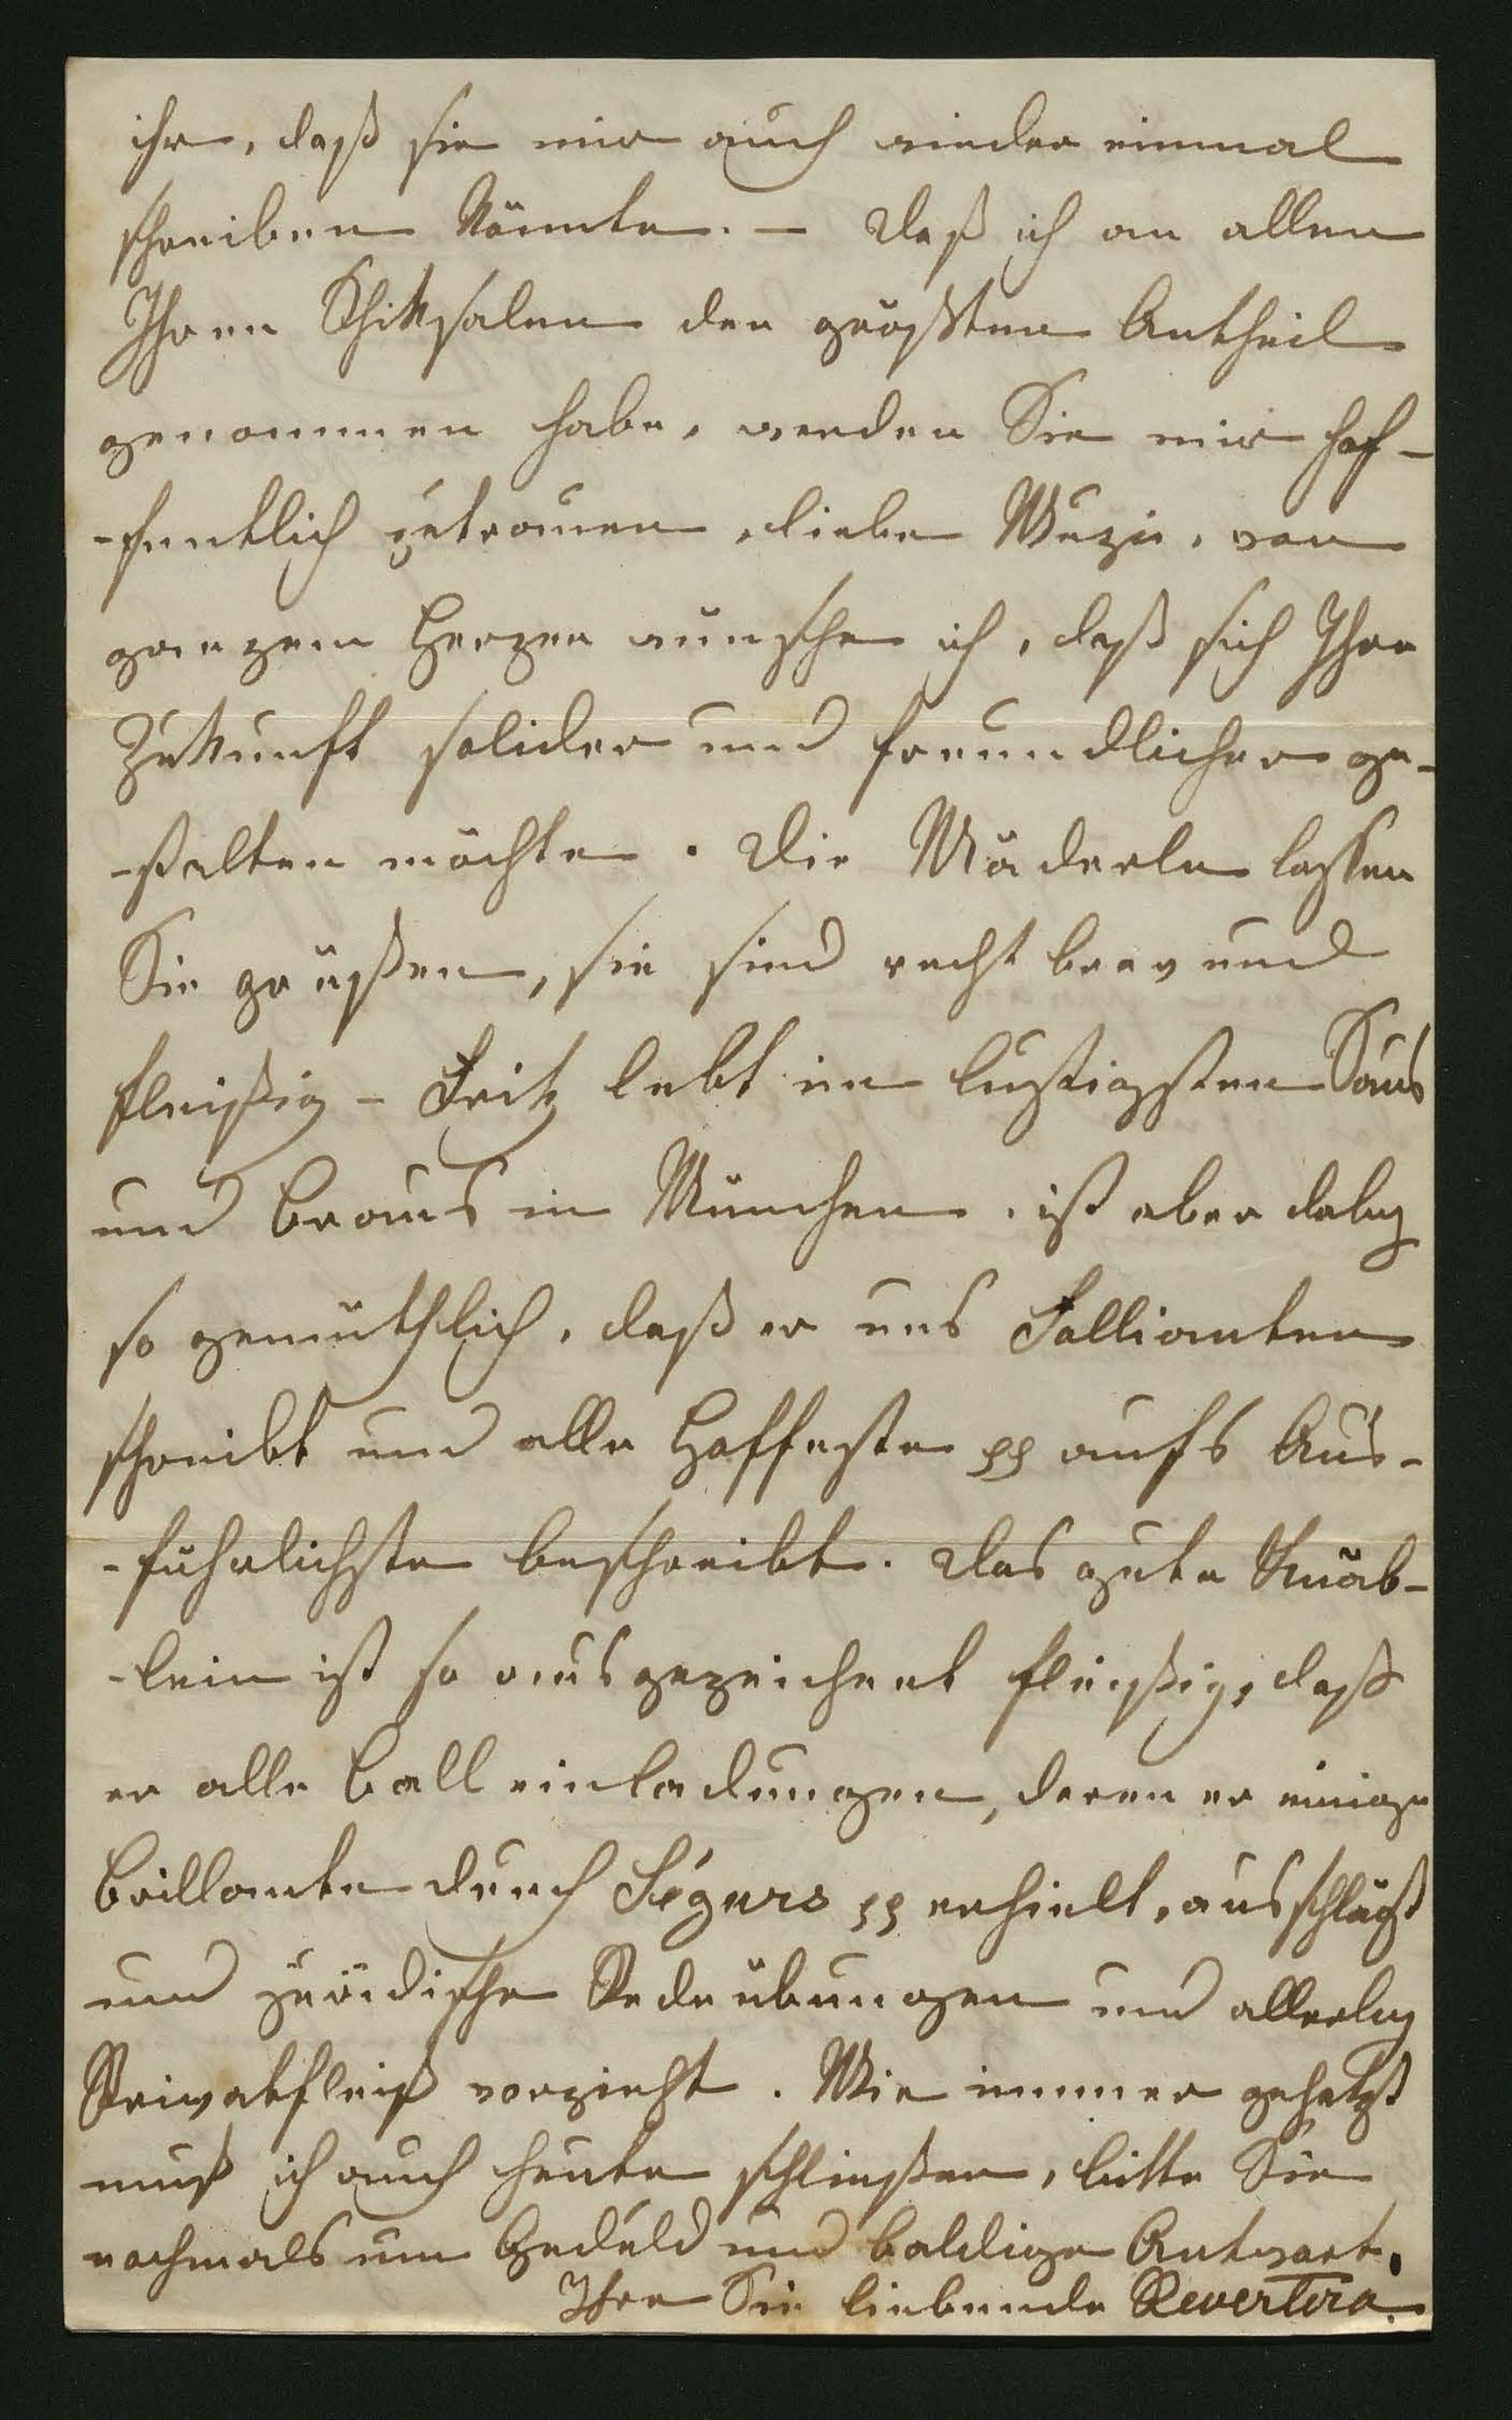 ihr, daß sie mir auch wieder einmal
schreiben könnte. – Daß ich an allen
Ihren Schiksalen den größten Antheil
genommen habe, werden Sie mir hof-
-fentlich zutrauen, liebe Muzi, von
ganzem Herzen wünsche ich, daß sich Ihre
Zukunft solider und freundlicher ge-
-stalten möchte. Die Mäderln lassen
Sie grüßen, sie sind recht brav und
fleißig – Fritz lebt im lustigsten Saus
und Braus in München, ist aber dabey
so gemüthlich, daß er uns Follianten
schreibt und alle Hoffeste pp aufs Aus-
-führlichste beschreibt. Das gute Knäb-
-lein ist so ausgezeichnet fleißig, daß
er alle Balleinladungen, deren er einige
brillante durch Ségurs pp erhielt, ausschlägt
und juridische Redeübungen und allerley
Privatfleiß vorzieht. Wie immer gehetzt
muß ich auch heute schließen, bitte Sie
nochmals um Geduld und baldige Antwort.
Ihre Sie liebende Revertera.